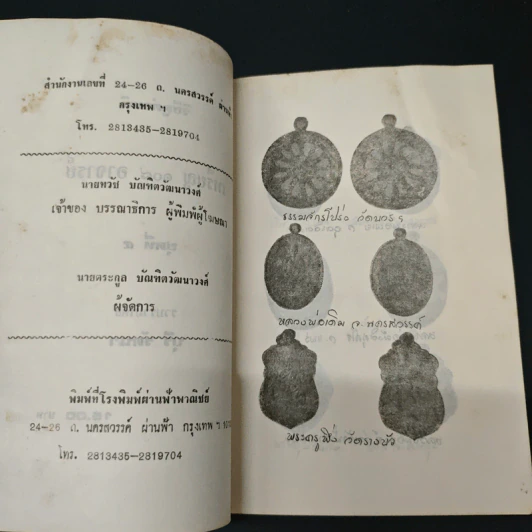 สำนักงานเลขที่ 24-26 ถ. นครสวรรค์
กรุงเทพ ฯ
โทร. 2813435-2819704
นายทวีช บัณฑิตวัฒนาวงศ์
เจ้าของ บรรณาธิการ ผู้พิมพ์ผู้โฆษณา
นายตระกูล บัณฑิตวัฒนาวงศ์
ผู้จัดการ
พิมพ์ที่โรงพิมพ์ผ่านฟ้าพาณิชย์
24-26 ถ. นครสวรรค์ ผ่านฟ้า กรุงเทพ ฯ
โทร. 2813435-2819704
ธรรมจักรโปร่ง วัดบวร ฯ
หลวงพ่อเดิม จ. นครสวรรค์
พระครูฟัง วัดรางบัว